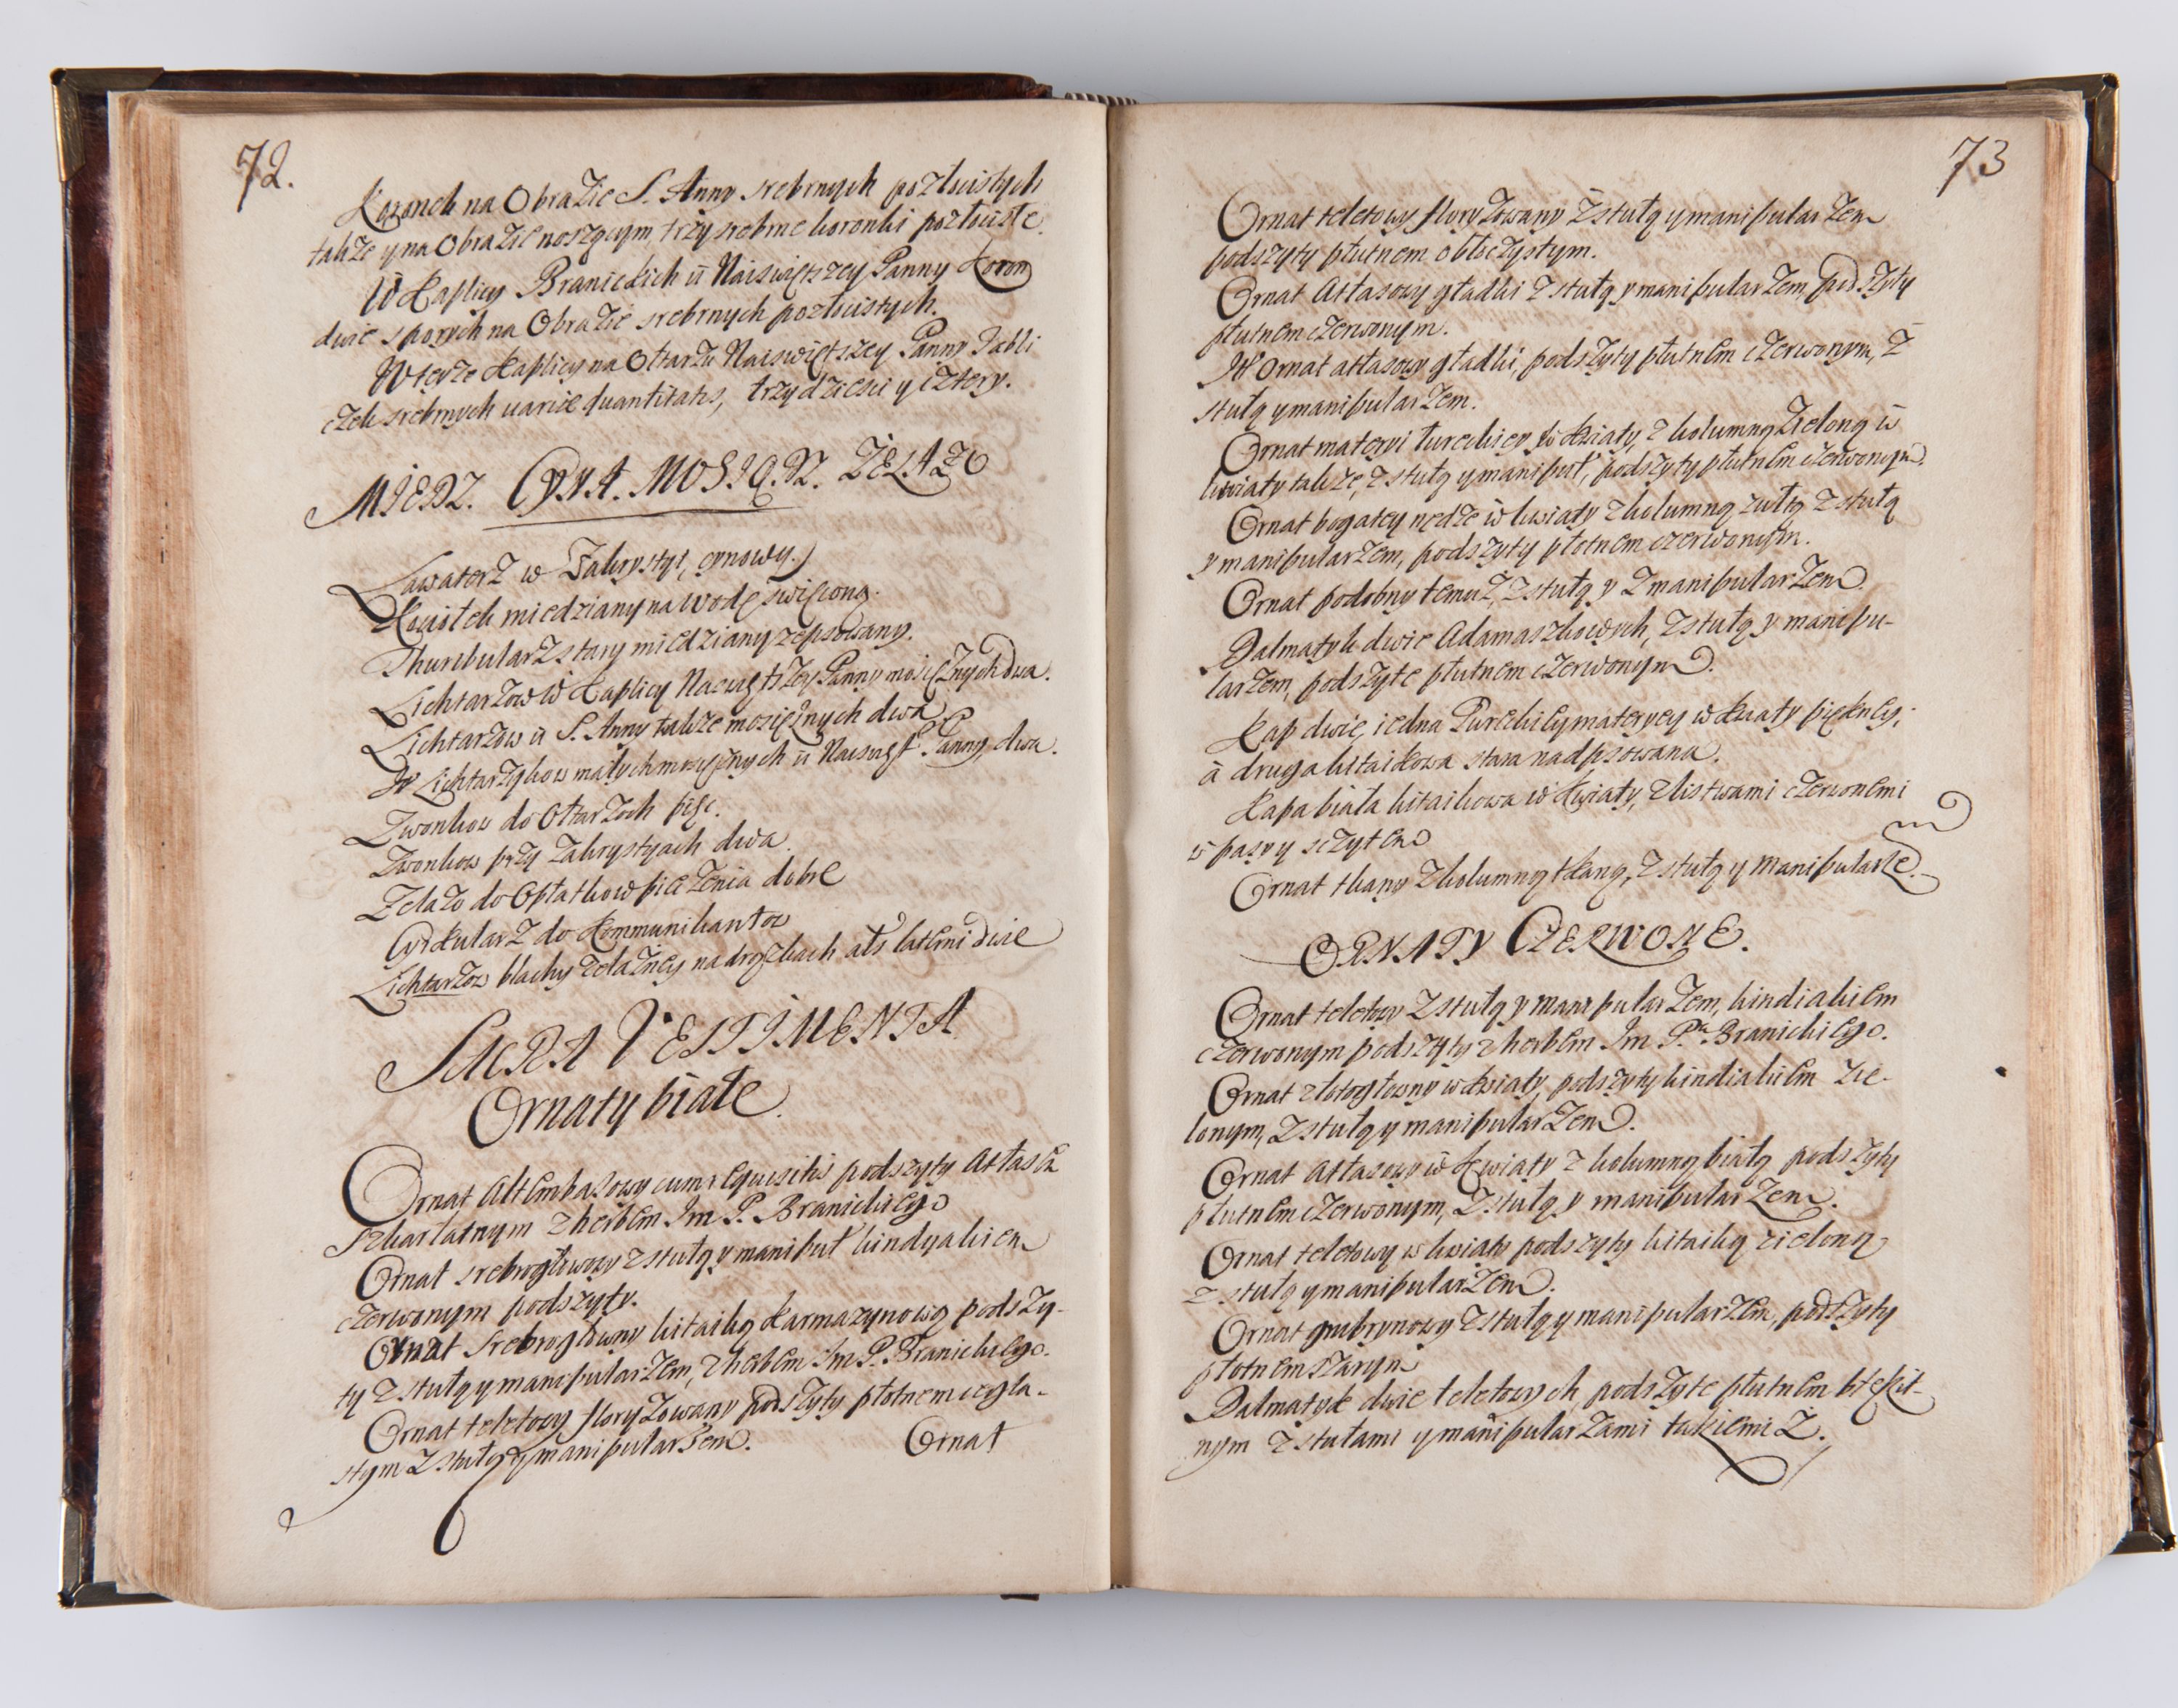 72.
Koronek na Obrazie S. Anny srebrnych pozłocistych
także y na Obrazie noszącym, trzy srebrne koronki pozłociste.
W Kaplicy Branickich ū Naiswiętszey Panny Koron
dwie sporych na Obrazie srebrnych pozłocistych.
W teyże Kaplicy na Ołtarzu Naiswiętszey Panny Tabli
czek srebrnych varice quantitatis, trzydziesci y cztery.
MIEDZ. CYNA. MOSIĄDZ. ŻELAZO
Lawaterz w Zakrystyi, cynowy.
Kociołek miedziany na wodę swięconą.
Thuribularz stary miedziany zepsowany.
Lichtarzow w Kaplicy Naswiętszey Panny mosiężnych dwa.
Lichtarzow ū S. Anny także mosiężnych dwa
Itt Lichtarzykow małych mosiężnych ū Naiswięt. Panny, dwa.
Zwonkow do Ołtarzoch pięc.
Zwonkow przy Zakrystyach dwa.
Zelazo do Opłatkow pieczenia dobre
Cyrkularz do Kommunikantow
Lichtarzow blachy żelazney na drążkach als laterni dwie
SACRA VESTIMENTA
Ornaty białe.
Ornat Altembasowy cum requisitis podszyty Atłasem
szkarłatnym z herbem Im P. Branickiego
Ornat srebrogłowowy z stułą y manipuł kindyakiem
czerwonym podszyty.
Ornat Srebrogłowny kitaiką karmazynową podszy-
ty z stułą y manipularzem, z herbem Im P. Branickiego.
Ornat teletowy floryzowany podszyty płotnem cegla-
stym z stułą y manipularzem.
Ornat
73
Ornat teletowy floryzowany z stułą y manipularzem
podszyty płutnem obłoczystym.
Ornat Atłasowy gładki z stułą y manipularzem, podszyty
płutnem czerwonym.
Itt Ornat atłasowy gładki, podszyty płutnem czerwonym, z
stułą y manipularzem.
Ornat materyi tureckiey w kwiaty, z kolumną zieloną w
kwiaty także, z stułą y manipuł, podszyty płutnem czerwonym.
Ornat bogatey nędze w kwiaty z kolumną żułtą z stułą
y manipularzem, podszyty płotnem czerwonym.
Ornat podobny temuż, z stułą y z manipularzem
Dalmatyk dwie Adamaszkowych, z stułą y manipu-
larzem, podszyte płutnem czerwonym.
Kap dwie, iedna Tureckiey materyey w kwiaty piękney,
à druga kitaikowa stara nadpsowana.
Kapa biała kitaikowa w kwiaty, z listwami czerwonemi
w pasy y szczytem
Ornat tkany z kolumną tkaną, z stułą y manipularzem.
ORNATY CZERWONE.
Ornat teletowy z stułą y manipularzem, kindiakiem
czerwonym podszyty z herbem Im Pa Branickiego.
Ornat złotogłowny w kwiaty, podszyty kindiakiem zie-
lonym, z stułą y manipularzem.
Ornat Atłasowy w kwiaty z kolumną białą podszyty
płutnem czerwonym, z stułą y manipularzem.
Ornat teletowy w kwiaty podszyty kitaiką zieloną
z stułą y manipularzem.
Ornat grubrynowy z stułą y manipularzem, podszyty
płotnem szarym
Dalmatyk dwie teletowych, podszyte płutnem błękit-
nym z stułami y manipularzami takiemiż.